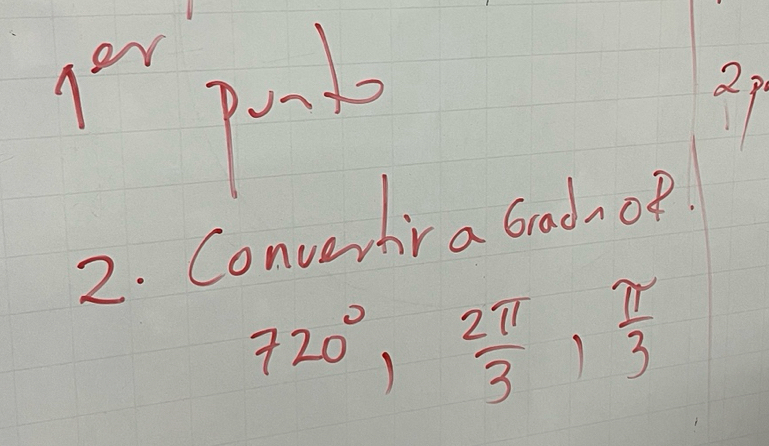 1er punto
2 p
2. Convertir a Grad n o R.
720°, 2π/3, π/3